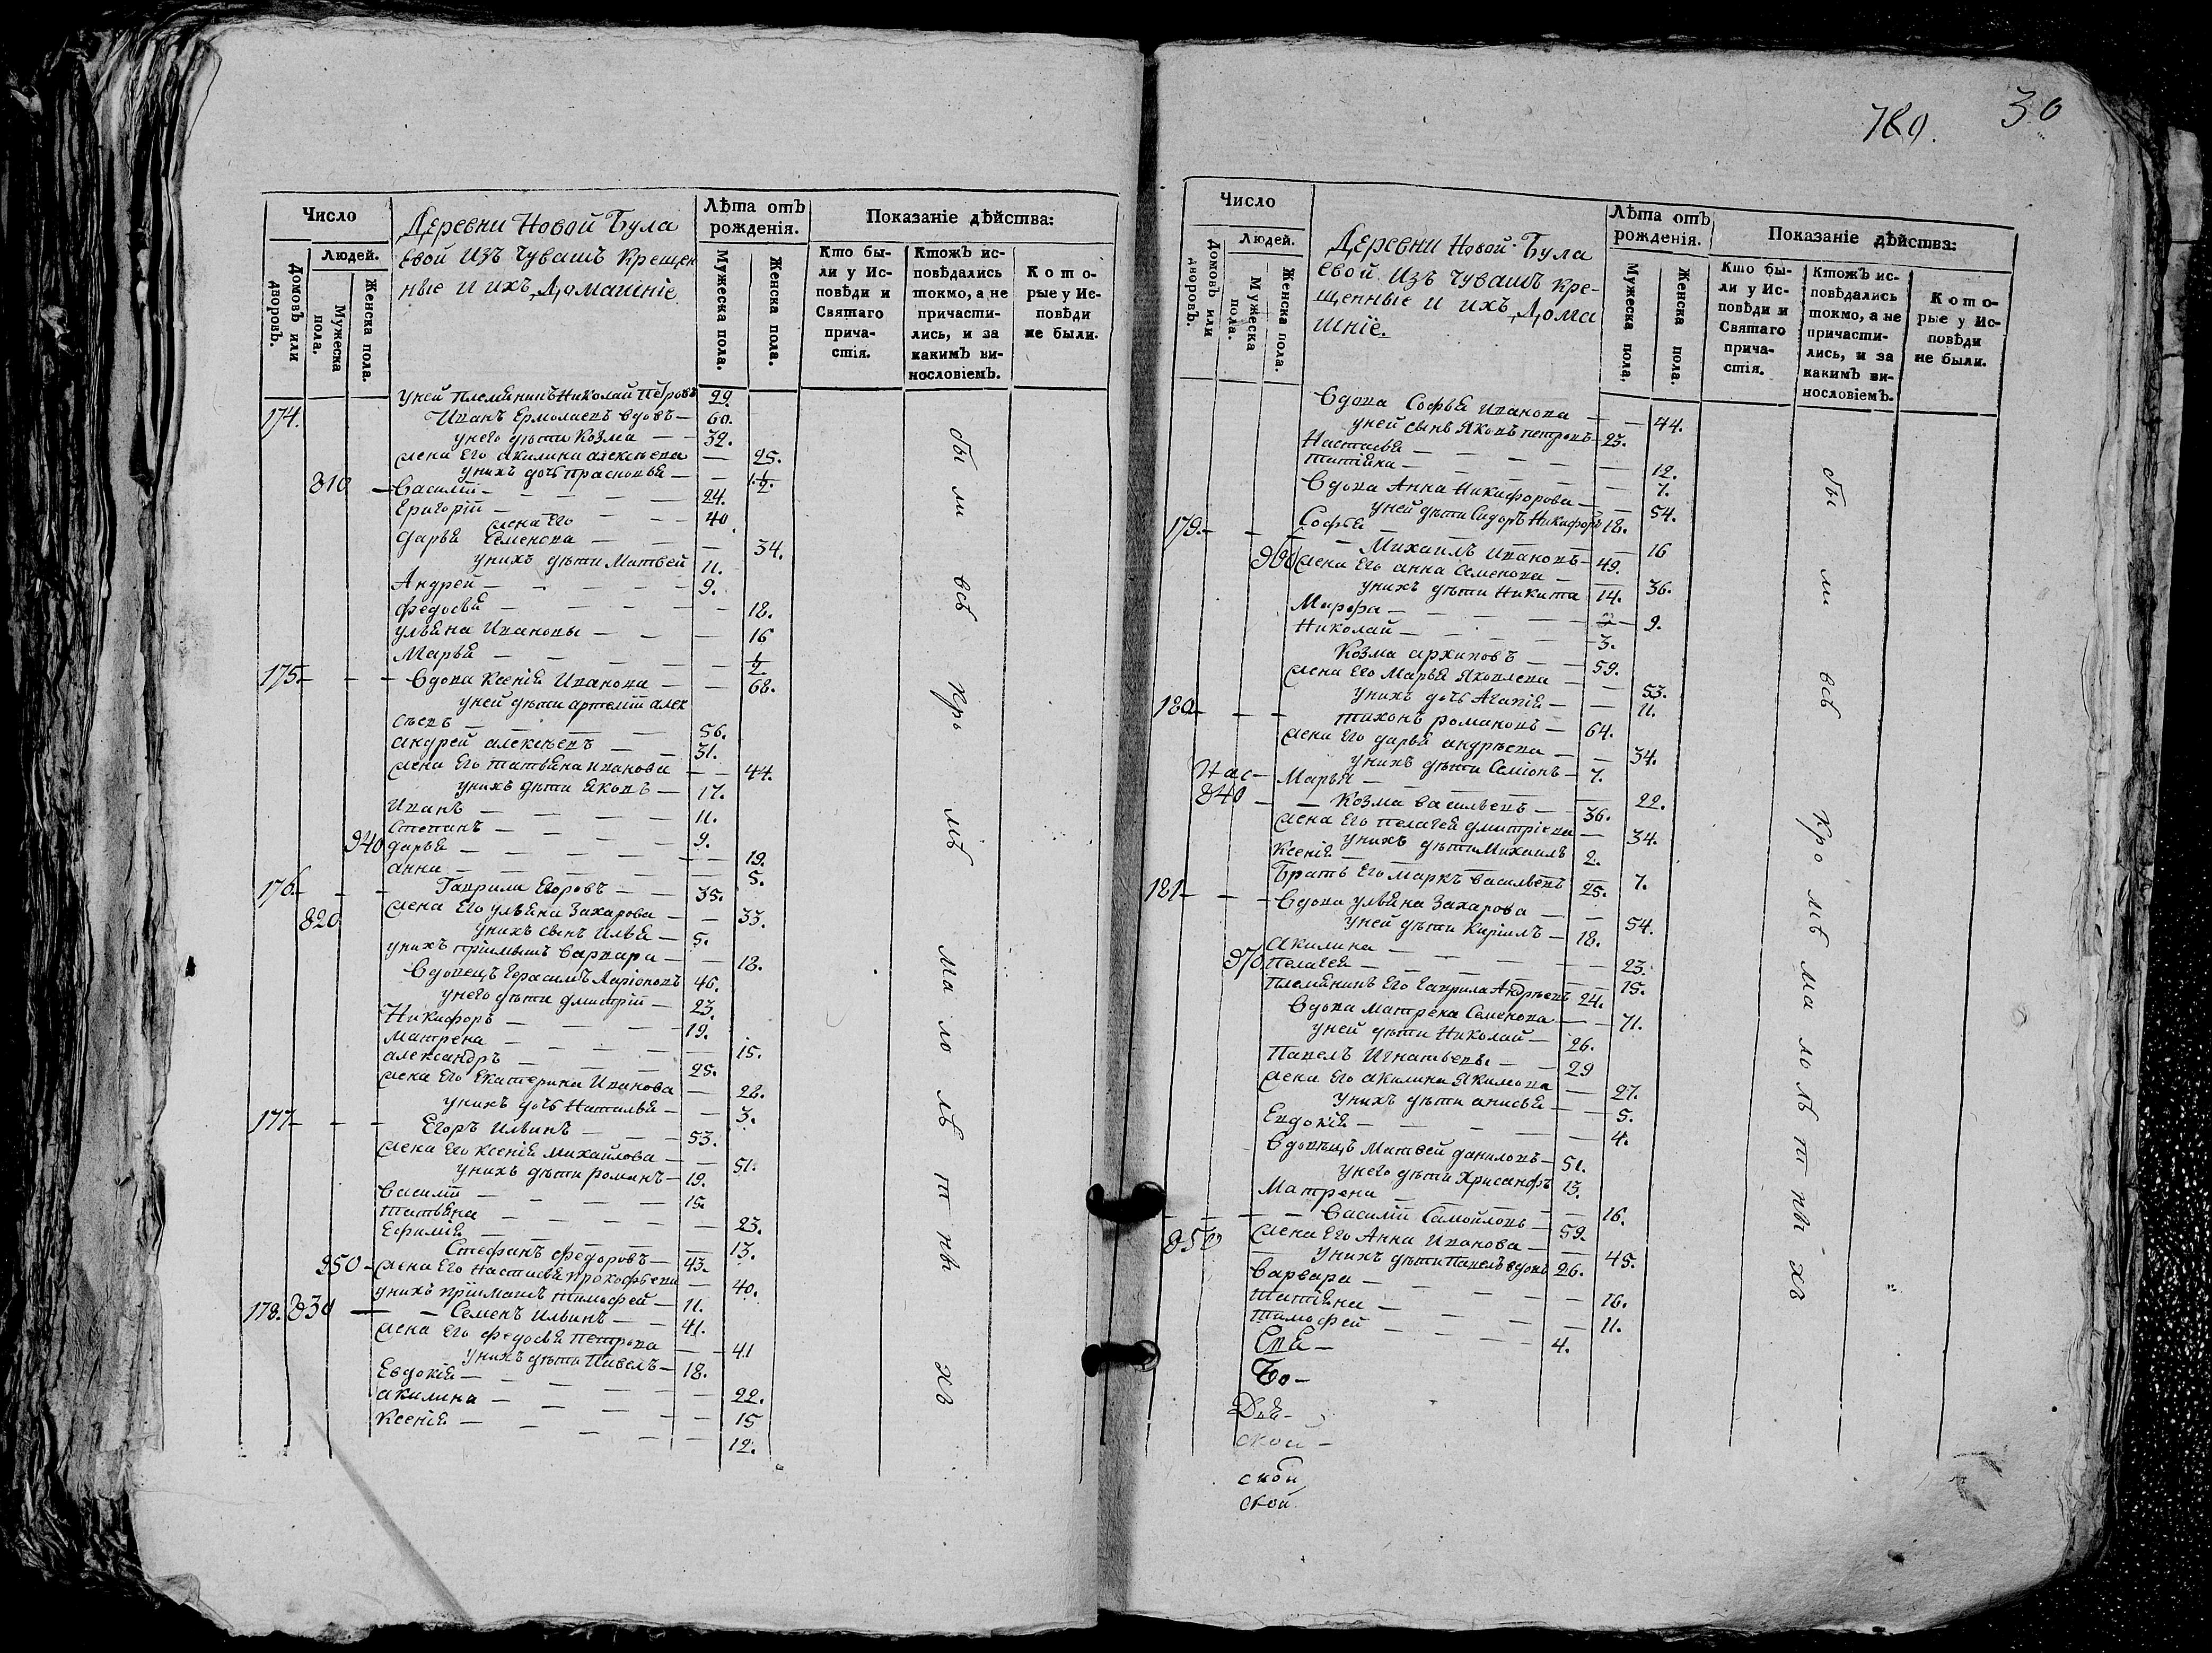 Число
Людей.
Домовъ или дворовъ.
Мужеска пола.
Женска пола.
Деревни Новой Була
евой изъ чувашъ крещен
ные и ихъ домашніе.
Лѣта отъ рожденія.
Мужеска пола.
Женска пола.
Показаніе дѣйства:
Кто бы-
ли у Ис-
повѣди и
Святаго
прича-
стія.
Ктожъ ис-
повѣдались
токмо, а не
причасти-
лись, и за
какимъ ви-
нословіемъ.
Кото-
рые у Ис-
повѣди
не были.
уней племянникъ Николай Петровъ 29.
174. Иванъ Ермолаевъ вдовъ — 60.
унего дѣти Козма — — 32.
жена его акилина алексѣева — 25.
унихъ дочь прасковья — — 1/2.
810 — Василій — 24.
Григорій — 40.
жена его
дарья Семенова — — 34.
унихъ дѣти Матвей 11.
Андрей — 9.
федосья — 18.
ульяна Ивановы — 16
Марья — 1/2.
175 — вдова Ксенія Иванова — 68.
уней дѣти артемій алек
сѣевъ — 56.
андрей алексѣевъ — 31.
жена его татьяна иванова — 44.
унихъ дѣти яковъ — 17.
Иванъ — 11.
Степанъ — 9.
940 дарья — 19.
анна — 5.
176 — Гаврила Егоровъ — 35.
жена его ульяна Захарова — 33.
820 унихъ сынъ Илья — 5.
унихъ пріимышъ варвара — 18.
вдовецъ Герасимъ Ларіоновъ 46.
унего дѣти дмитрій — 23.
Никифоръ — 19.
матрена — 15.
александръ — 25.
жена его екатерина Иванова — 28.
унихъ дочь Наталья — 3.
177 — Егоръ Ильинъ — 53.
жена его ксенія михайлова — 51.
унихъ дѣти романъ — 19.
василій — 15.
татьяна — 23.
Ефимія — 13.
Стефанъ федоровъ — 43.
950 — жена его настасья прокофьева — 40.
унихъ пріимашъ тимофей — 11.
178. 830 — Семенъ Ильинъ — 41.
жена его федосья петрова — 41
унихъ дѣти Павелъ — 18.
Евдокія — 22.
акилина — 15
Ксенія — 12.
бы ли всѣ кро мѣ ма ло лѣ т ны хъ
789.
30
Число
Людей.
Домовъ или дворовъ.
Мужеска пола.
Женска пола.
Деревни Новой Була
евой изъ чувашъ кре-
щенные и ихъ дома
шніе.
Лѣта отъ рожденія.
Мужеска пола,
Женска пола.
Показаніе дѣйства:
Кто бы-
ли у Ис-
повѣди и
Святаго
прича-
стія.
Ктожъ ис-
повѣдались
токмо, а не
причасти-
лись, и за
какимъ ви-
нословіемъ.
Кото-
рые у Ис-
повѣди
не были.
вдова Софья Иванова — 44.
уней сынъ Яковъ петровъ 23.
Настасья — 12.
татіяна — 7.
вдова Анна Никифорова — 54.
уней дѣти Сидоръ Никифоръ 18.
Софья — 16
179. — Михаилъ Ивановъ — 49.
960 жена его анна Семенова — 36.
унихъ дѣти Никита 14.
Марфа — 9.
Николай — 3.
Козма архиповъ — 59.
жена его Марья Яковлева — 53.
унихъ дочь Агапія — 11.
180 — тихонъ романовъ — 64.
жена его дарья андрѣева — 34.
унихъ дѣти Семіонъ — 7.
Марья — 22.
840 — Козма васильевъ — 36.
жена его пелагея дмитріева — 34.
унихъ дѣти Михаилъ 2.
Ксенія — 7.
братъ его маркъ васильевъ 25.
181 — вдова ульяна Захарова — 54.
уней дѣти Кирилъ — 18.
акилина — 23.
970 пелагея — 15.
племянникъ его гаврила Андрѣевъ 24.
вдова матрена Семенова — 71.
уней дѣти Николай — 26.
павелъ Игнатьевы — 29
жена его акилина Якимова — 27.
унихъ дѣти анисья — 5.
Евдокія — 4.
вдовецъ матвей даниловъ — 51.
унего дѣти Хрисанфъ 13.
Матрена — 16.
василій Самойловъ — 59.
850 жена его Анна Иванова — 45.
унихъ дѣти Павелъ вдовъ 26.
варвара — 16.
татіяна — 11.
тимофей — 4.
бы ли всѣ кро мѣ ма ло лѣ т ны хъ
Бо —
ской —
ской
ской